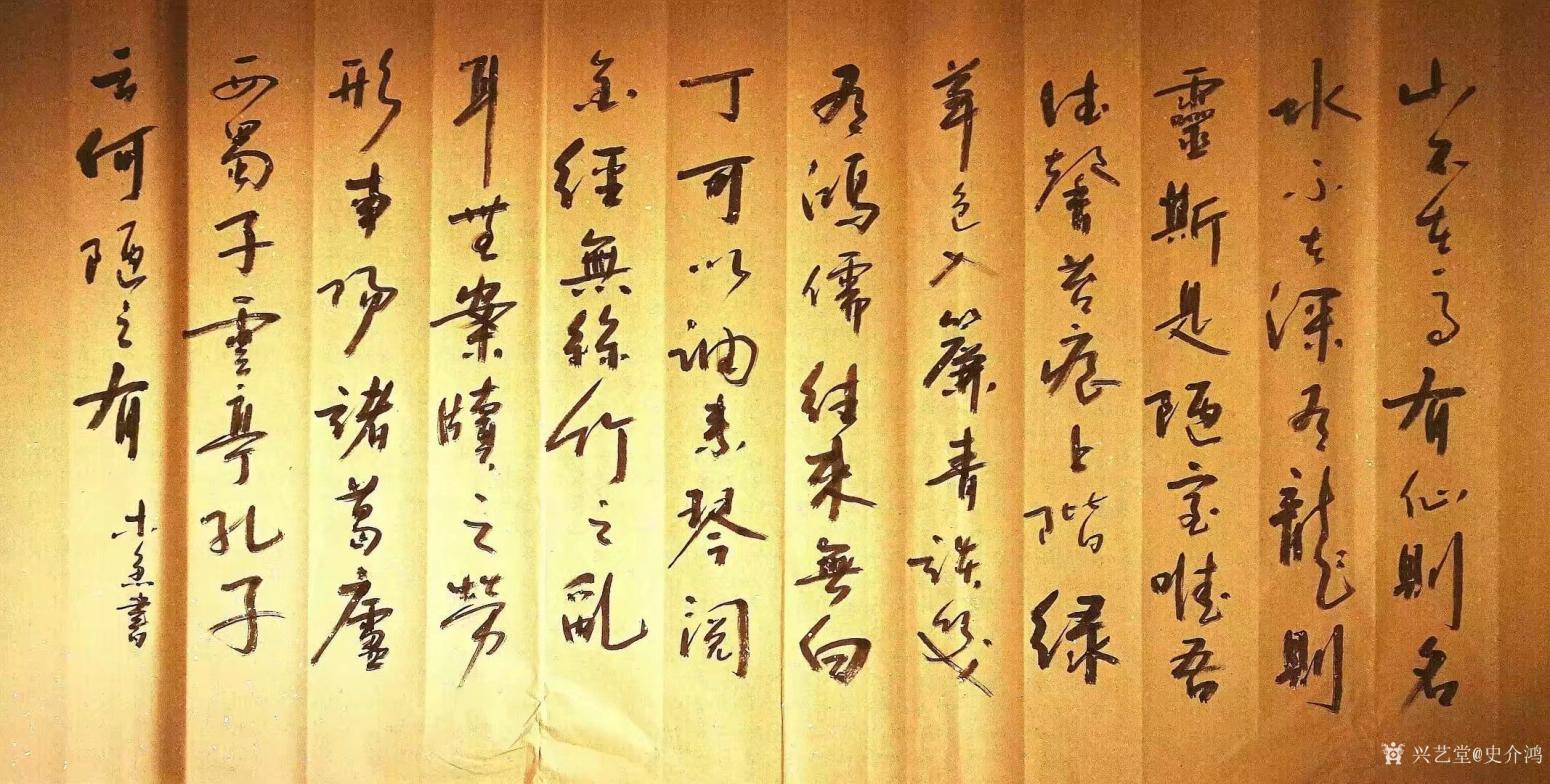 山不在高有仙則名
水不在深有龍則
靈斯是陋室唯吾
德馨苔痕上階緑
草色入簾青談笑
有鴻儒往来無白
丁可以調素琴閱
金經無絲竹之亂
耳無案牘之勞
形南陽諸葛廬
西蜀子雲亭孔子
云何陋之有
書
兴艺堂@史介鸿